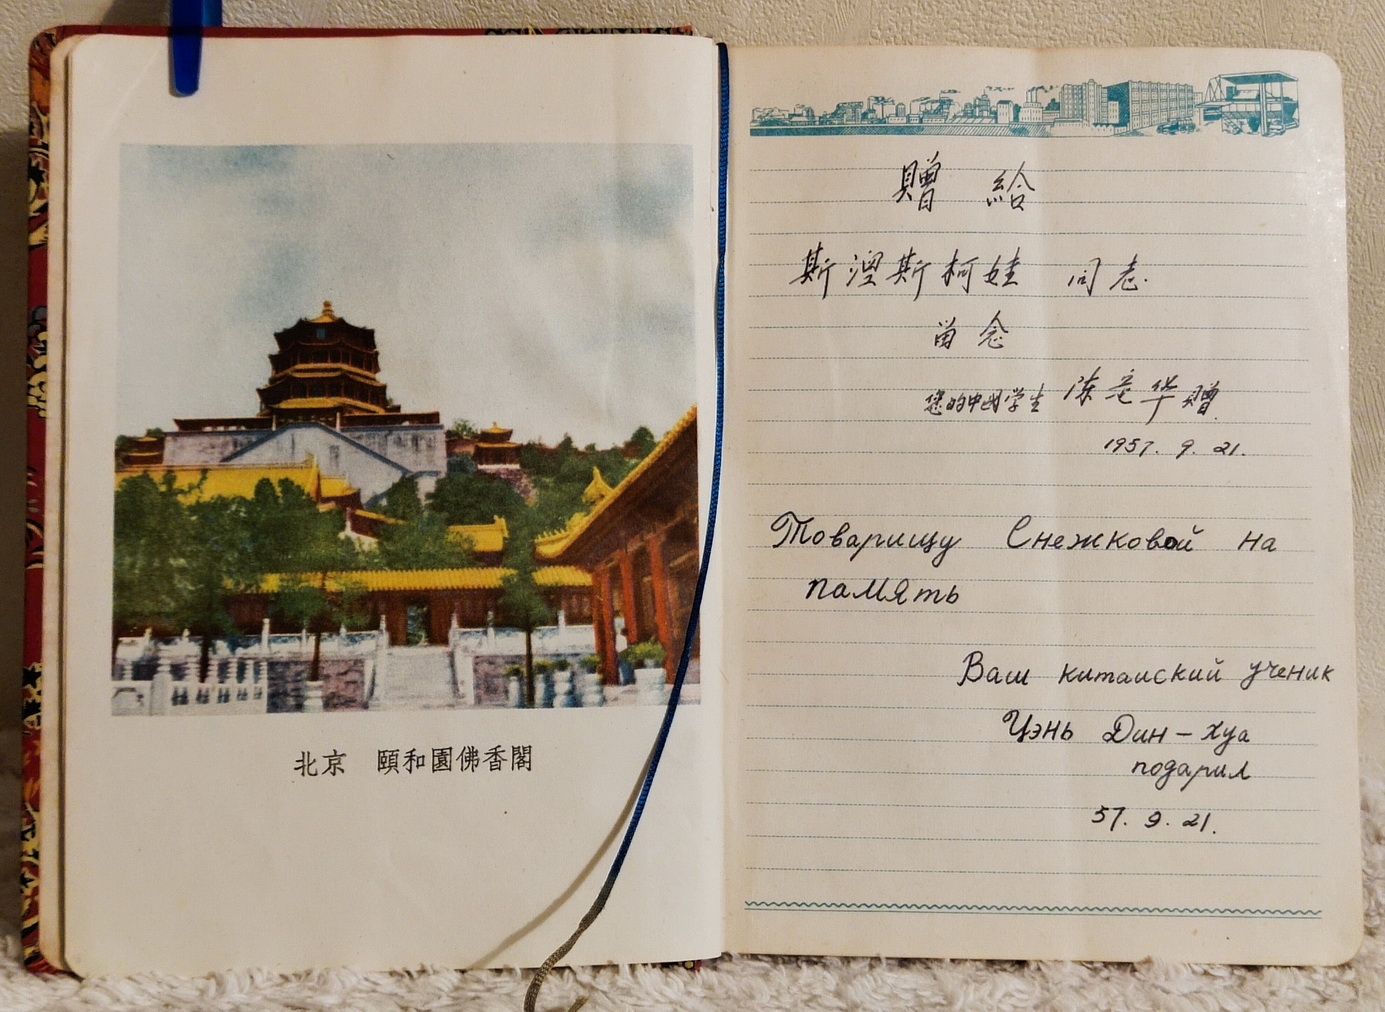 北京　頤和園佛香閣
贈 給
斯涅斯柯娃 同志.
留念
您的中国学生 陈定华 赠.
1957. 9. 21.
Товарищу Снежковой на
память
Ваш китайский ученик
Чэнь Дин-хуа
подарил
57. 9. 21.